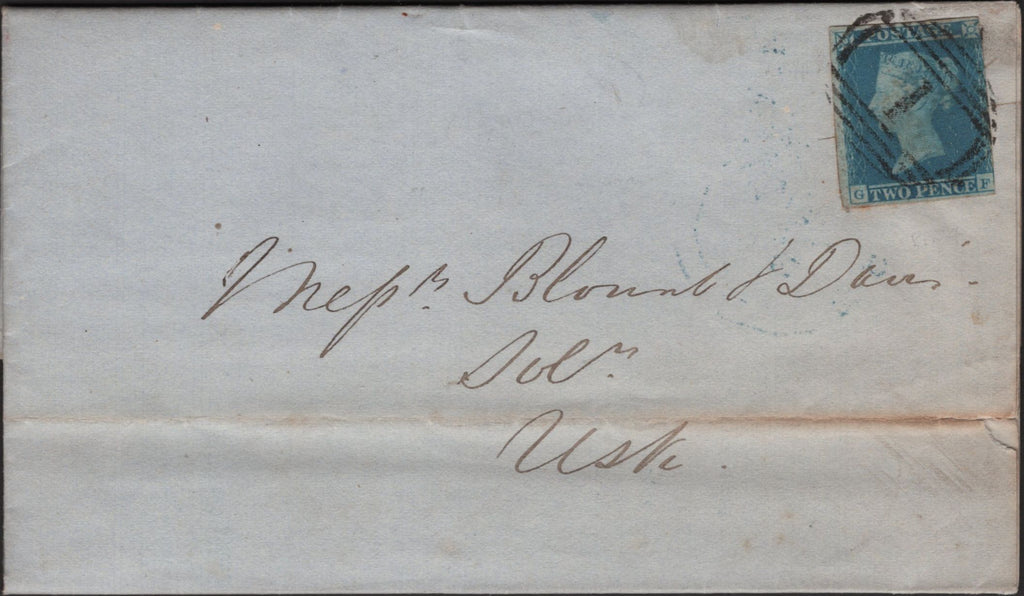 POSTAGE
1
G TWO PENCE F
Messrs. Blount & Davis.
Solrs.
Usk.